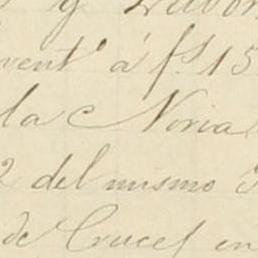 y
vent.ᵃ á fs. 15
la Noria
2 del mismo
de Cruces en